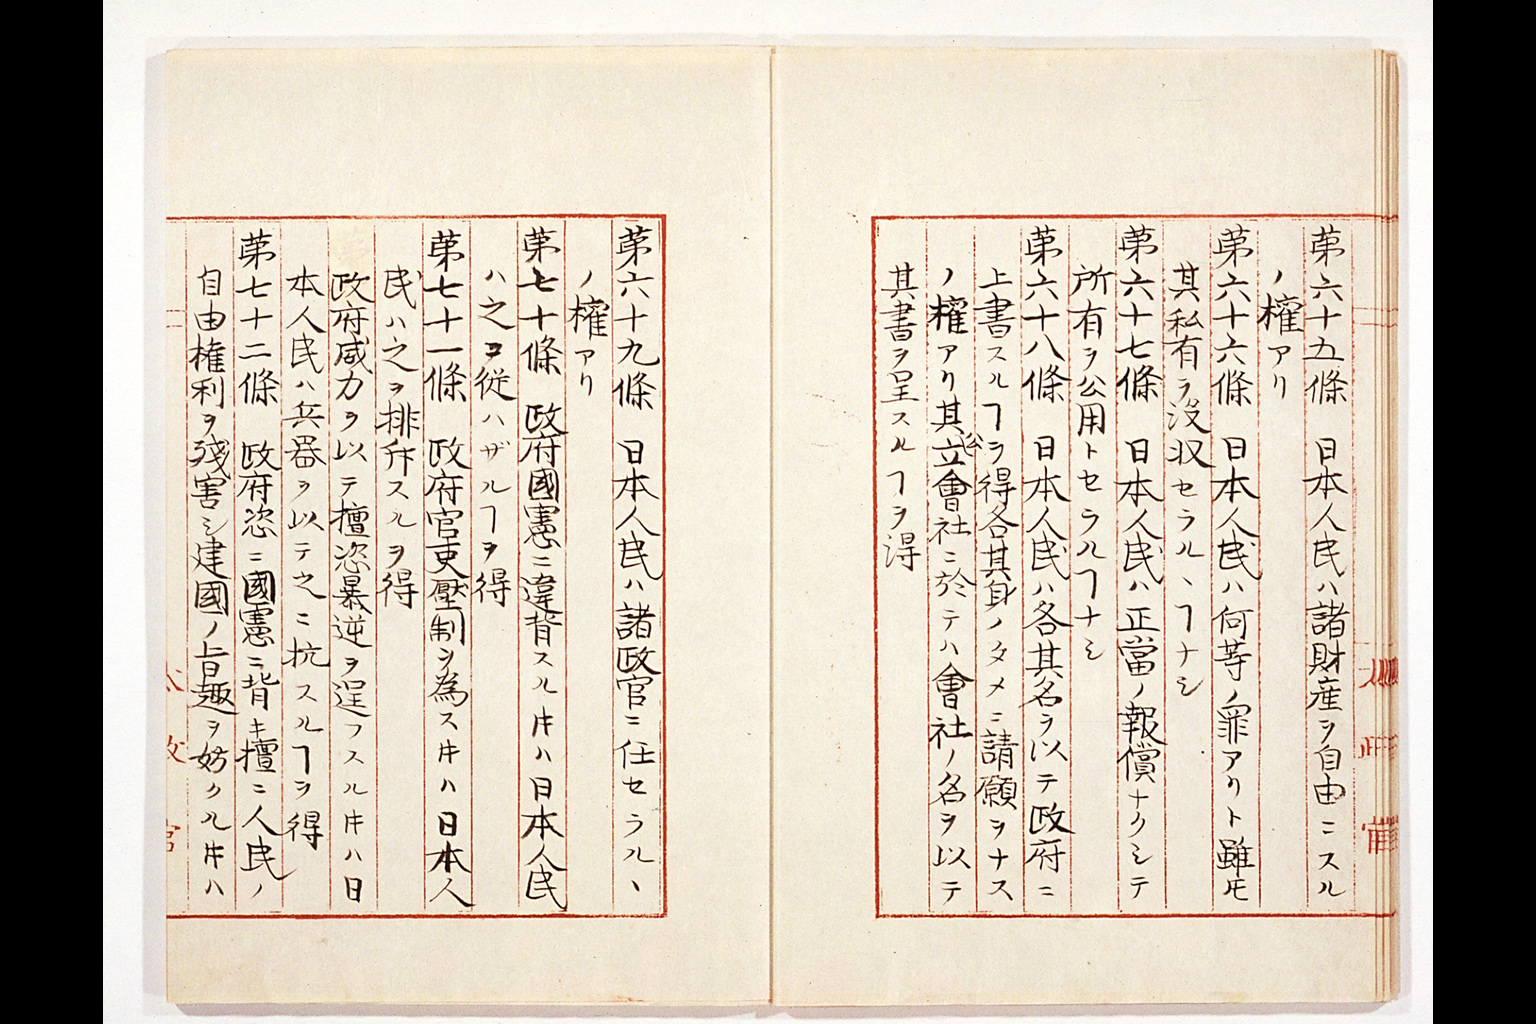 苐六十五條　日本人民ハ諸財産ヲ自由ニスル
ノ權アリ
苐六十六條　日本人民ハ何等ノ罪アリト雖𪜈
其私有ヲ没収セラルヽヿナシ
苐六十七條　日本人民ハ正當ノ報償ナクシテ
所有ヲ公用トセラルヿナシ
苐六十八條　日本人民ハ各其名ヲ以テ政府ニ
上書スルヿヲ得各其身ノタメニ請願ヲナス
ノ權アリ其公立會社ニ於テハ會社ノ名ヲ以テ
其書ヲ呈スルヿヲ得
苐六十九條　日本人民ハ諸政官ニ任セラルヽ
ノ權アリ
苐七十條　政府國憲ニ違背スルトキハ日本人民
ハ之ニ從ハザルヿヲ得
苐七十一條　政府官吏壓制ヲ為ストキハ日本人
民ハ之ヲ排斥スルヲ得
政府威力ヲ以テ擅恣暴逆ヲ逞フスルトキハ日
本人民ハ兵器ヲ以テ之ニ抗スルヿヲ得
苐七十二條　政府恣ニ國憲ニ背キ擅ニ人民ノ
自由権利ヲ殘害シ建國ノ旨趣ヲ妨クルトキハ